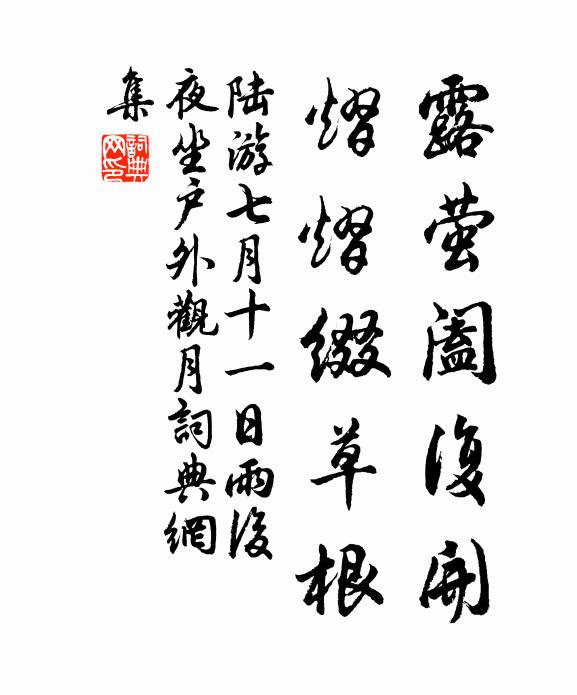 露萤阖復開
熠熠綴草根
陆游七月十一日雨後
夜坐户外觀月詞典網
集
詞典网印